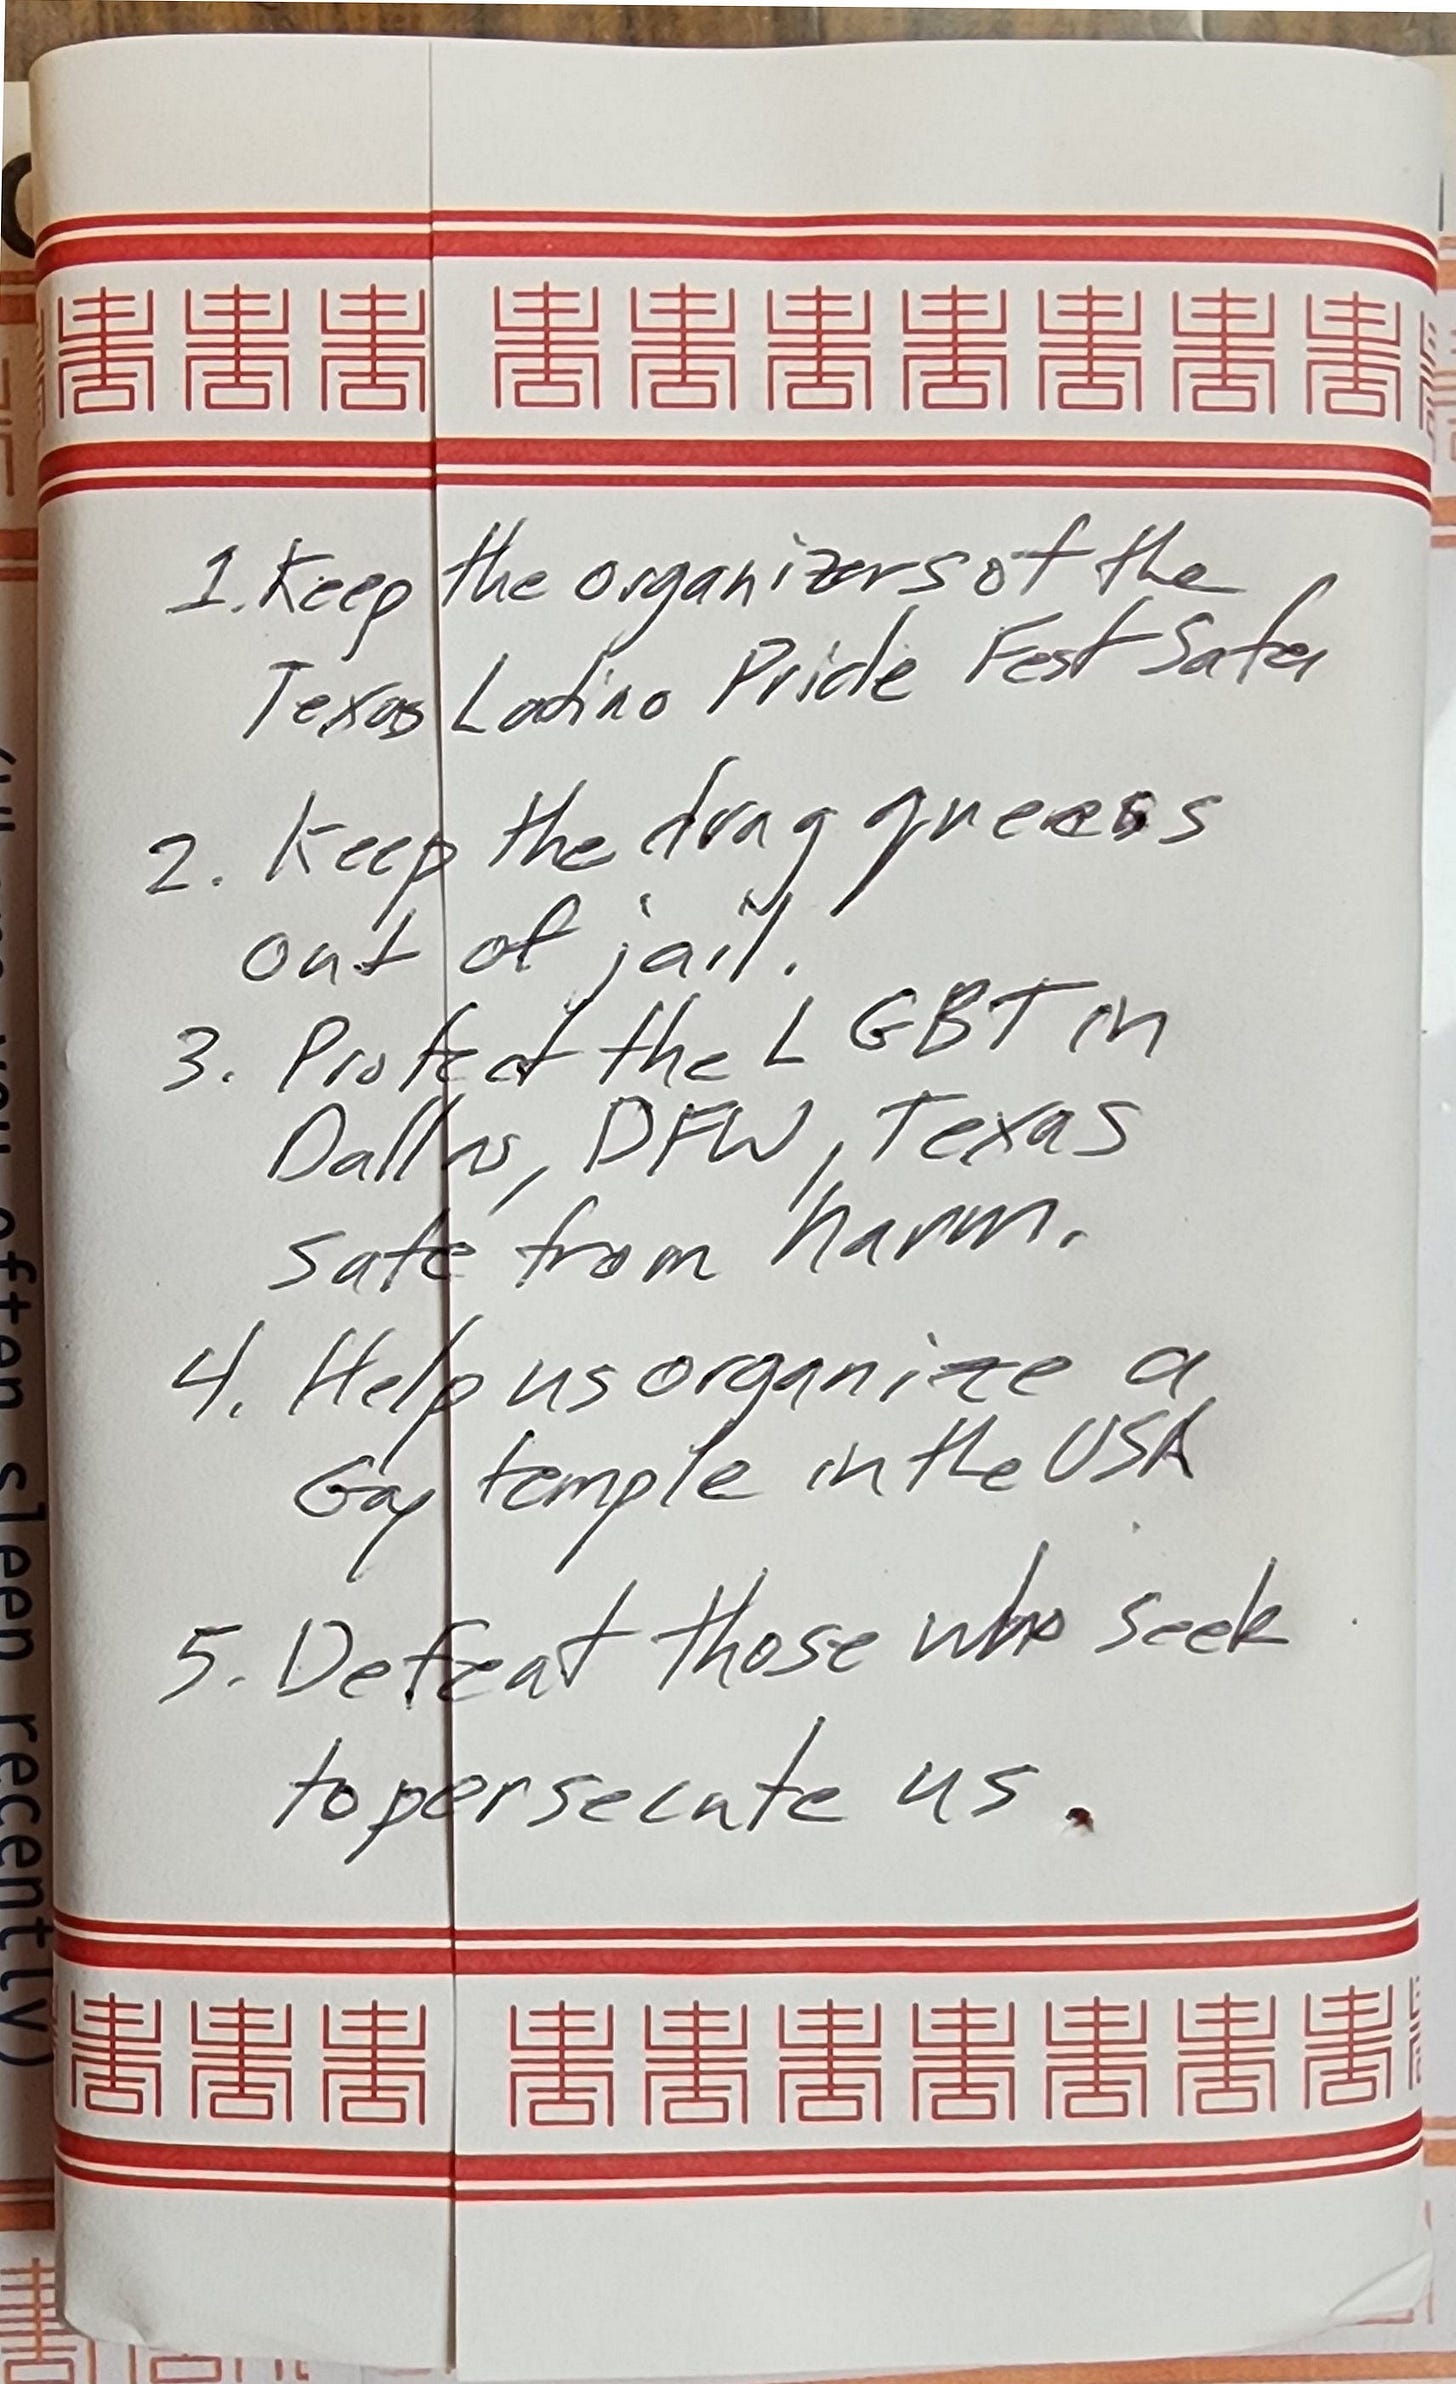 1. Keep the organizers of the
Texas Latino Pride Fest Safe,
2. Keep the drag queens
out of jail.
3. Protect the LGBT in
Dallas, DFW, Texas
safe from harm.
4. Help us organize a
Gay temple in the USA
5. Defeat those who seek
to persecute us.
you often sleep recently)